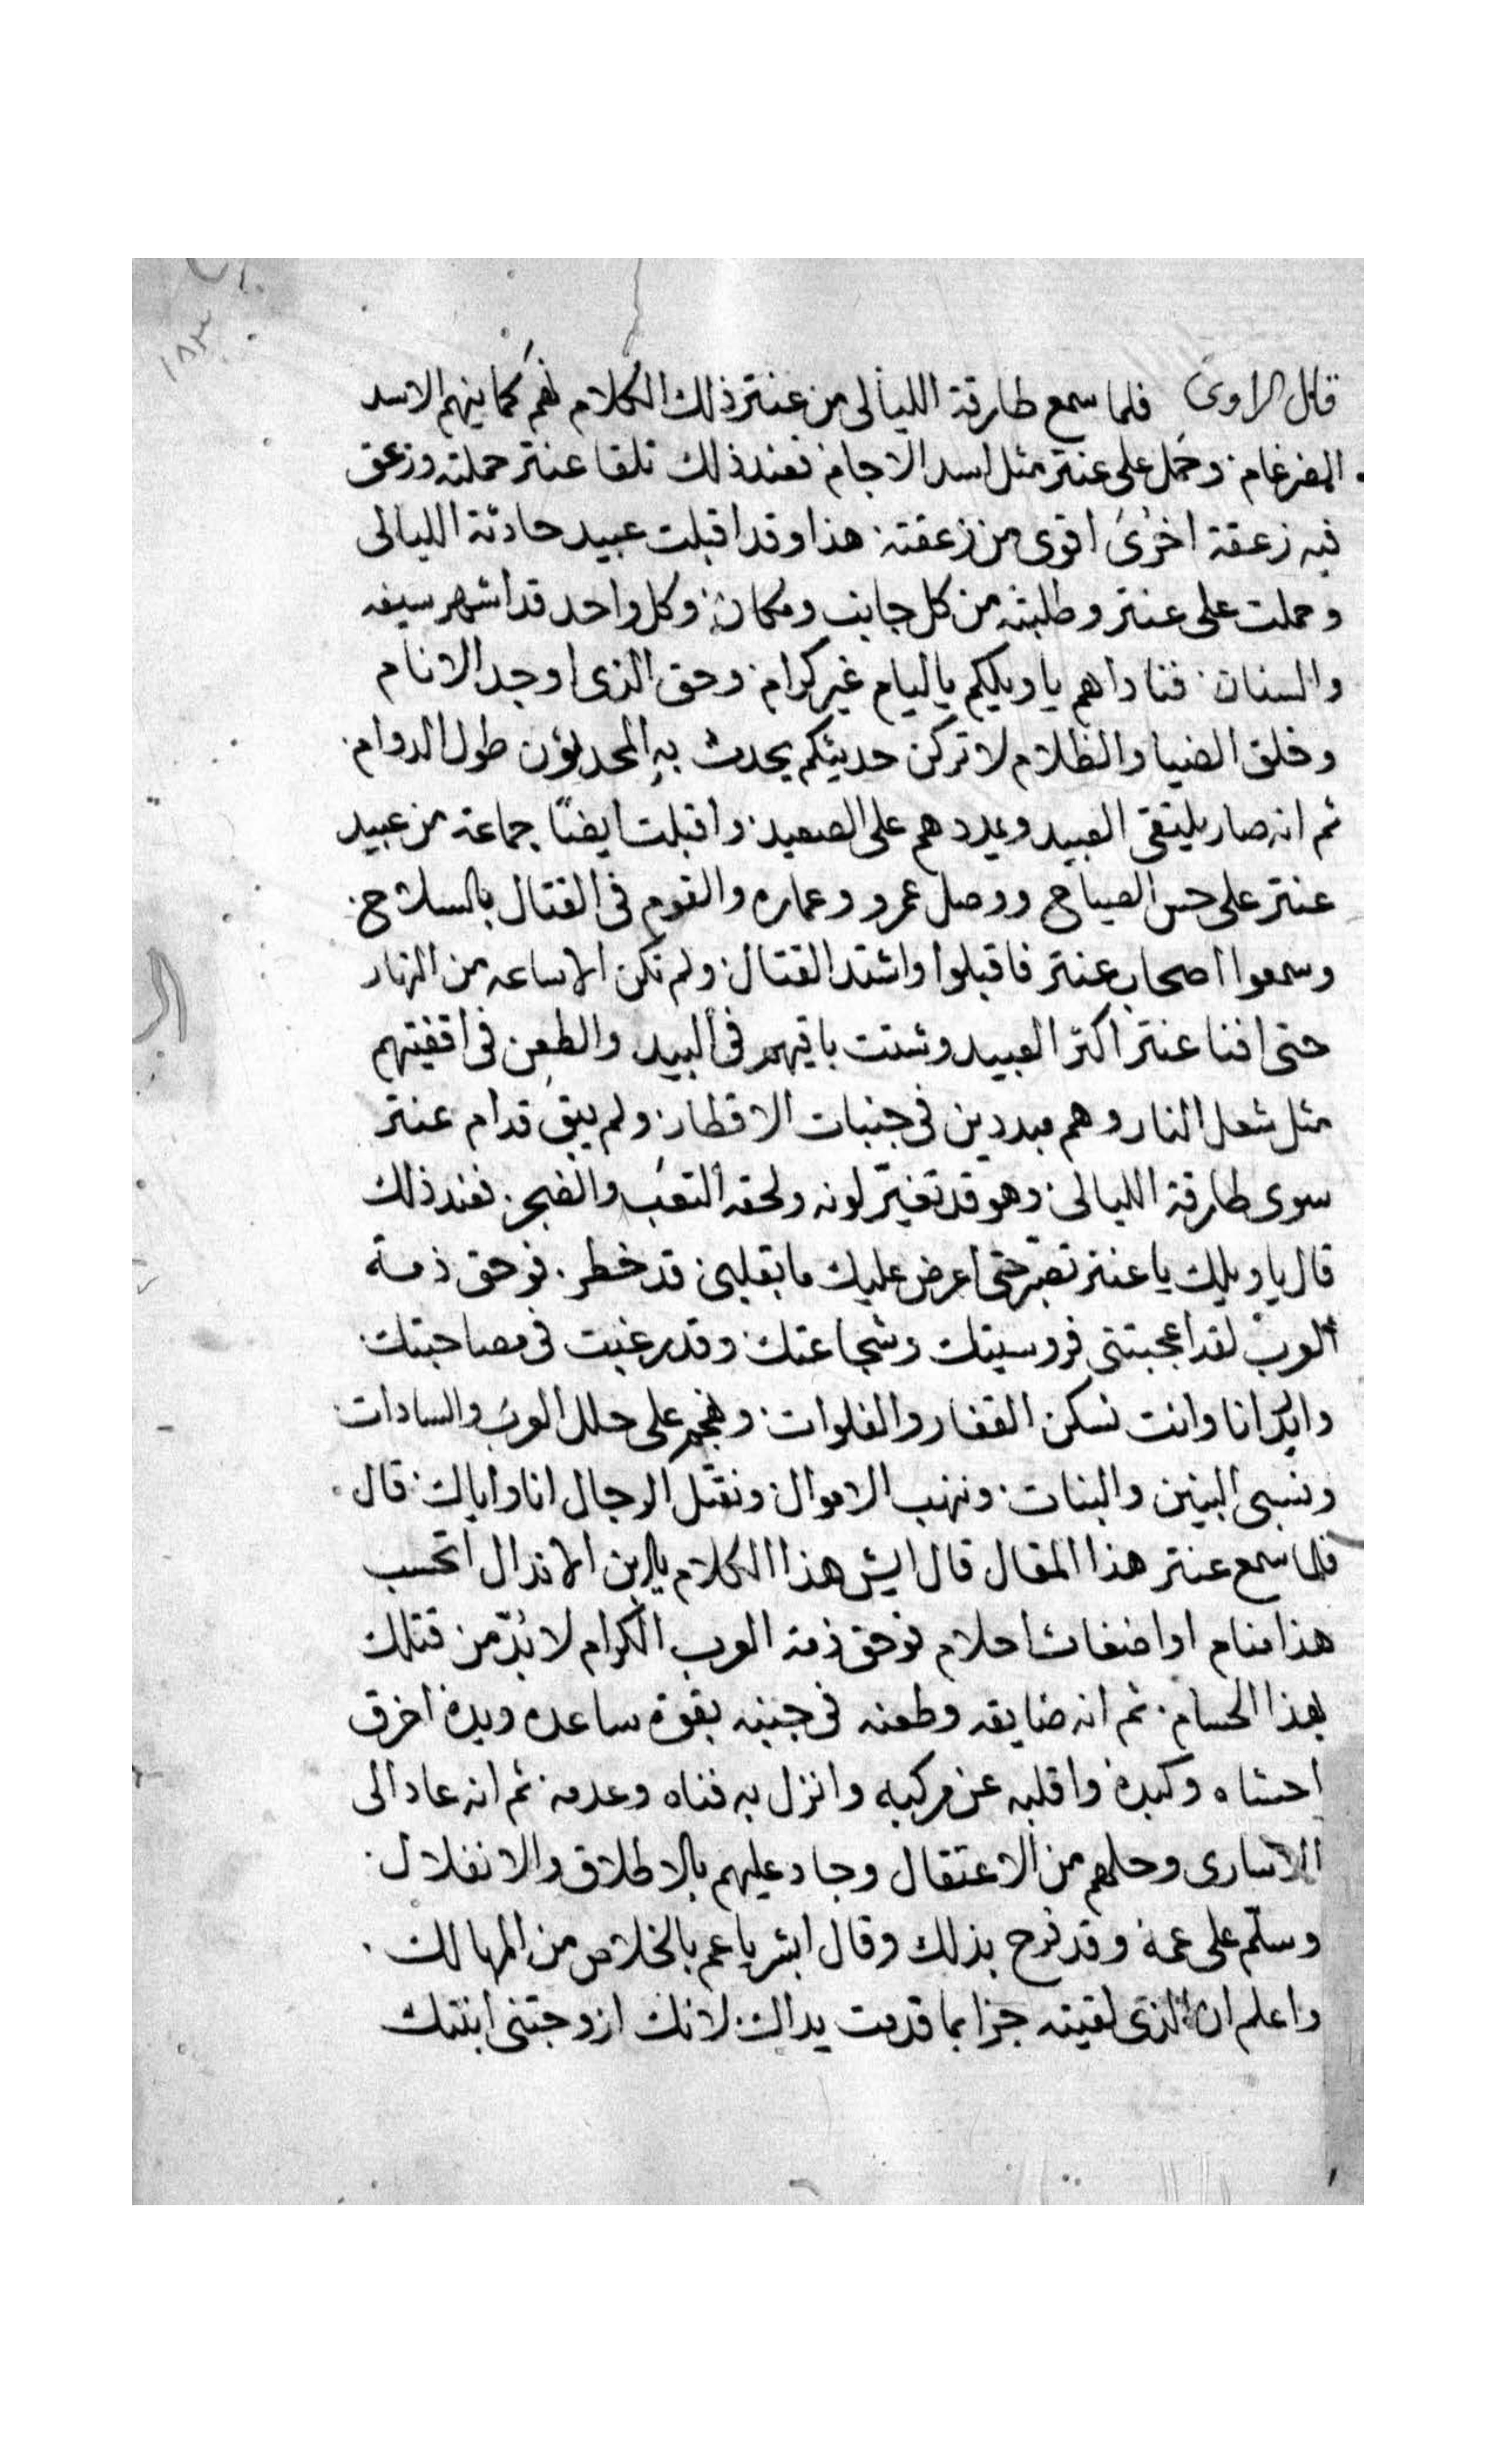 ١٨٣
قال الراوى فلما سمع طارقة الليالى من عنتر ذلك الكلام نهم كما ينهم الاسد
الضرغام. وحمل على عنتر مثل اسد الاجام. فعند ذلك تلقا عنتر حملته وزعق
فيه زعقة اخرى اقوى من زعقته. هذا وقد اقبلت عبيد حادثة الليالى
وحملت على عنتر وطلبته من كل جانب ومكان. وكل واحد قد اشهر سيفه
والسنان. فناداهم يا ويلكم يا ليام غير كرام. وحق الذى اوجد الانام
وخلق الضيا والظلام لا تركن حديثكم يحدث به المحدثون طول الدوام.
ثم انه صار يلتقى العبيد ويمددهم على الصعيد. واقبلت ايضًا جماعة من عبيد
عنتر على حس الصياح ووصل عمرو وعماره والقوم فى القتال بالسلاح.
وسمعوا اصحاب عنتر فاقبلوا واشتد القتال. ولم تكن الا ساعه من النهار
حتى افنا عنتر اكثر العبيد وشتت باقيهم فى البيد والطعن فى اقفيتهم
مثل شعل النار وهم مبددين فى جنبات الاقطار. ولم يبق قدام عنتر
سوى طارقة الليالى. وهو قد تغيّر لونه ولحقه التعب والضجر. فعند ذلك
قال يا ويلك يا عنتر تصبّر حتى اعرض عليك ما بقلبى قد خطر. فوحق ذمة
العرب لقد اعجبتنى فروسيتك وشجاعتك. وقد رغبت فى مصاحبتك.
وابكر انا وانت نسكن القفار والفلوات. ونهجم على حلل العرب والسادات.
ونسبى البنين والبنات. وننهب الاموال. ونقتل الرجال انا واياك. قال.
فلما سمع عنتر هذا المقال قال ايش هذا الكلام يا ابن الاندال اتحسب
هذا منام او اضغاث احلام فوحق ذمة العرب الكرام لا بُدّ من قتلك
بهذا الحسام. ثم انه ضايقه وطعنه فى جنبه بقوة ساعده ويده اخرق
احشاه وكبده واقلبه عن مركبه وانزل به فناه وعدمه. ثم انه عاد الى
الاسارى وحلهم من الاعتقال وجاد عليهم بالاطلاق والانفلال.
وسلّم على عمه وقد فرح بذلك وقال ابشر يا عم بالخلاص من المهالك.
واعلم ان الذى لقيته جزا بما قدمت يداك. لانك ازوجتنى ابنتك